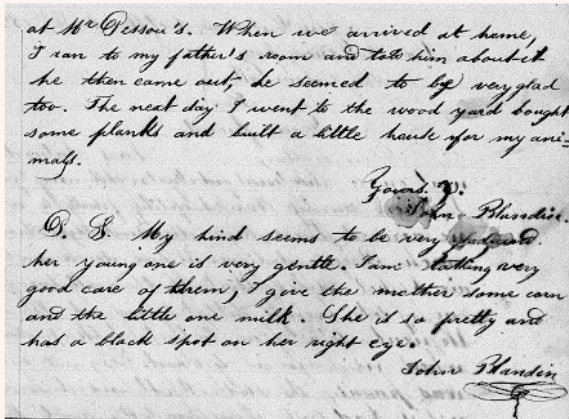 at Mr Dessou's. When we arrived at home,
I ran to my father's room and told him about it
he then came out, he seemed to be very glad
too. The next day I went to the wood yard bought
some planks and built a little house for my ani=
mals.
Yours.
John Blandin.
P. S. My hind seems to be very glad and
her young one is very gentle. I am taking very
good care of them, I give the mother some corn
and the little one milk. She is so pretty and
has a black spot on her right eye.
John Blandin